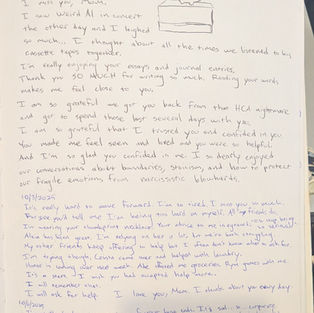 I miss you, Mom.
I saw Weird Al in concert
the other day and I laughed
so much. I thought about all the times we listened to his
cassette tapes together.
I'm really enjoying your essays and journal entries.
Thank you SO MUCH for writing so much. Reading your words
makes me feel close to you.
I am so grateful we got you back from that HCA nightmare
and got to spend those last several days with you.
I am so grateful that I trusted you and confided in you.
You made me feel seen and loved and you were so helpful.
And I'm so glad you confided in me. I so dearly enjoyed
our conversations about boundaries, and how to protect
our fragile emotions from narcissistic blowhards.
10/3/2025
It's really hard to move forward. I'm so tired. I miss you so much.
you'd tell me I'm being too hard on myself. All my friends do.
I'm wearing your
Alex has been great. I'm relying on her a lot, but we're both struggling.
My other friends keep offering to help but I often don't know what to ask for.
I'm trying though. came over and helped with laundry.
is coming over next week. offered me groceries. games with me.
It's a I wish you had accepted help more.
I will remember that.
I will ask for help. I love you, Mom. I think about you every day.